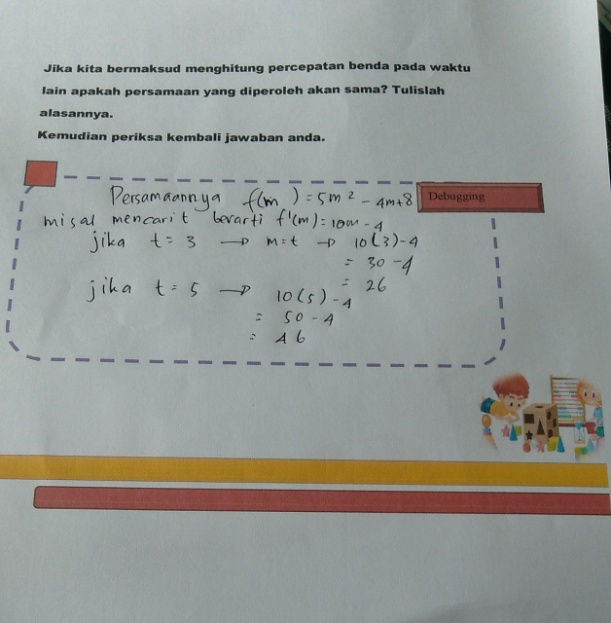 Jika kita bermaksud menghitung percepatan benda pada waktu
lain apakah persamaan yang diperoleh akan sama? Tulislah
alasannya.
Kemudian periksa kembali jawaban anda.
Debugging
Persamaannya f(m) = 5m² - 4m+8
misal mencari t berarti f'(m) = 10m - 4
jika t = 3 → m = t → 10(3) - 4
= 30 - 4
= 26
jika t = 5 → 10(5) - 4
= 50 - 4
= 46